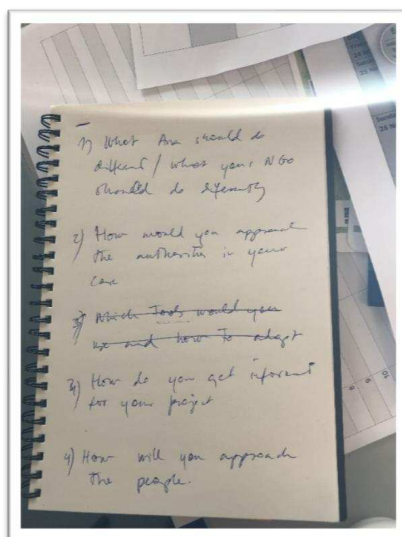 1) What Ana should do
different / what your NGO
should do differently
2) How would you approach
the authorities in your
case
3) Which Tools would you
use and how to adapt
3) How do you get
for your project
4) How will you approach
the people.